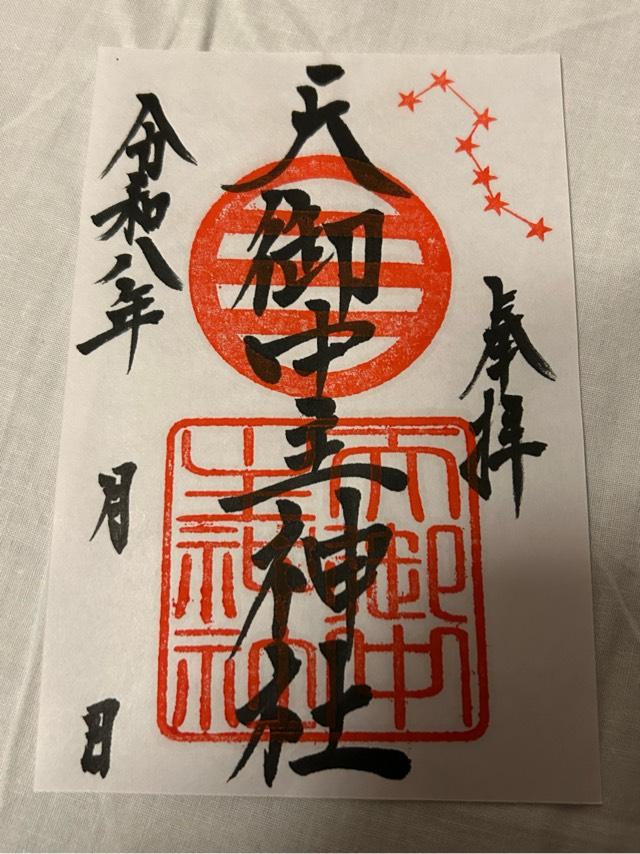 奉拝
天御中主神社
天御中
主神社
令和八年
月
日